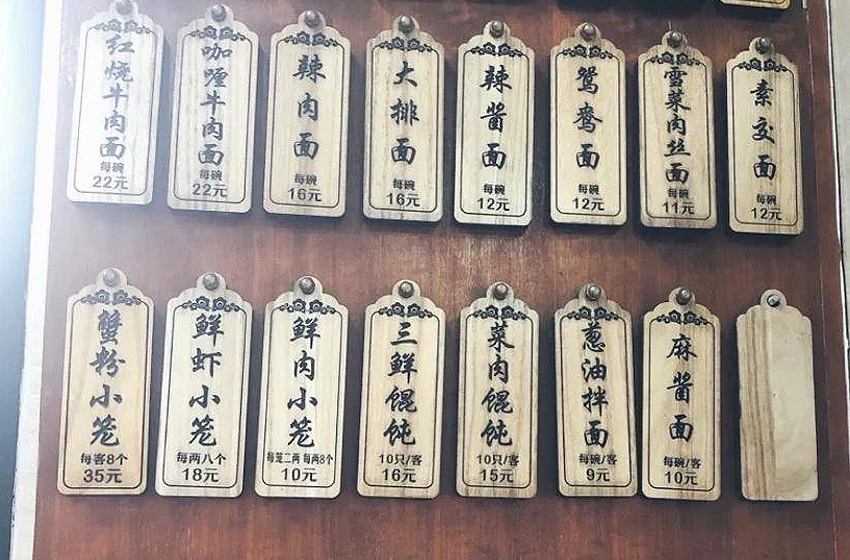 红烧牛肉面
每碗
22元
咖喱牛肉面
每碗
22元
辣肉面
每碗
16元
大排面
每碗
16元
辣酱面
每碗
12元
鸳鸯面
每碗
12元
雪菜肉丝面
每碗
11元
素交面
每碗
12元
蟹粉小笼
每客8个
35元
鲜虾小笼
每两八个
18元
鲜肉小笼
每笼二两 每两8个
10元
三鲜馄饨
10只/客
16元
菜肉馄饨
10只/客
15元
葱油拌面
每碗/客
9元
麻酱面
每碗/客
10元